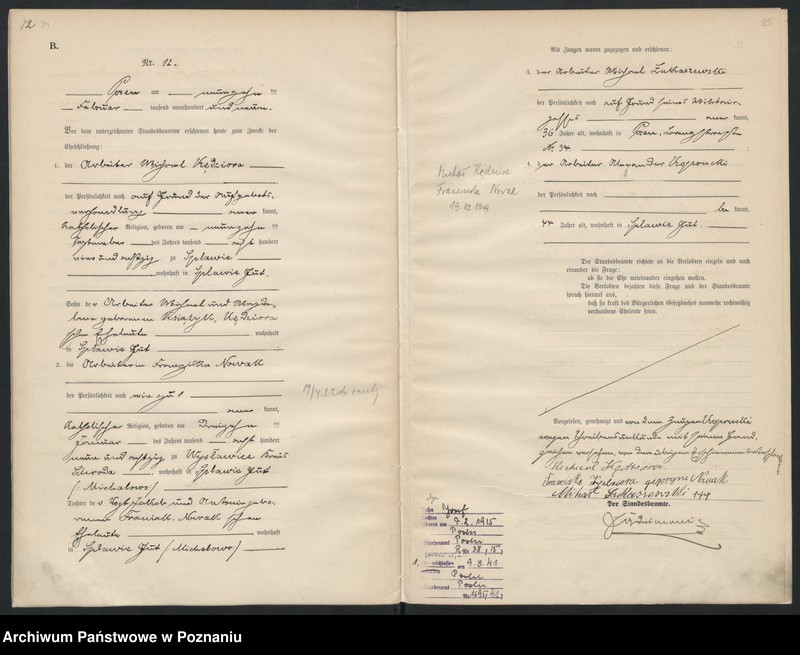 12
B.
Nr. 12.
am neunzehn ten
Februar tausend neunhundert und neun.
Vor dem unterzeichneten Standesbeamten erschienen heute zum Zwecke der
Eheschließung:
1. der Arbeiter Michael Kędziora
der Persönlichkeit nach auf Grund der Aufgebots-
verhandlung anerkannt,
katholischer Religion, geboren am neunzehn ten
September des Jahres tausend acht hundert
vier und achtzig zu Splawie
wohnhaft in Splawie Gut.
Sohn des Arbeiter Michael und Magda-
lena geborenen Książyk, Kędziora
schen Eheleute wohnhaft
in Splawie Gut
2. die Arbeiterin Franziska Nowak
der Persönlichkeit nach wie zu 1
anerkannt,
katholischer Religion, geboren am
Januar des Jahres tausend acht hundert
neun und achtzig zu Wyslawice Kreis
Schroda wohnhaft in Splawie Gut
(Michalowo)
Tochter des Vogt Jakob und Antonie gebo-
renen Nowak schen
Eheleute wohnhaft
in Splawie Gut (Michalowo)
25
Als Zeugen waren zugezogen und erschienen:
3. der Arbeiter Michael Lukaszewski
der Persönlichkeit nach auf Grund seines Militär-
passes anerkannt,
36 Jahre alt, wohnhaft in
No. 34
4. der Arbeiter Alexander
der Persönlichkeit nach
bekannt,
44 Jahre alt, wohnhaft in Splawie Gut.
Nowak
19.02.1909
Der Standesbeamte richtete an die Verlobten einzeln und nach
einander die Frage:
ob sie die Ehe miteinander eingehen wollen.
Die Verlobten bejahten diese Frage und der Standesbeamte
sprach hierauf aus,
daß sie kraft des Bürgerlichen Gesetzbuchs nunmehr rechtmäßig
verbundene Eheleute seien.
Vorgelesen, genehmigt und von dem Zeugen
wegen Schreibensunkunde mit seinem Hand-
zeichen versehen, von den übrigen Erschienenen unterschrieben
Michael Kędziora
Franziska Kędziora geborene Nowak
Michał Lukaszewski +++
Der Standesbeamte.
Josef
geboren am 9.2.1915
Posen
Standesamt Posen
1.
am 9.8.41
Posen
Standesamt Posen
Archiwum Państwowe w Poznaniu